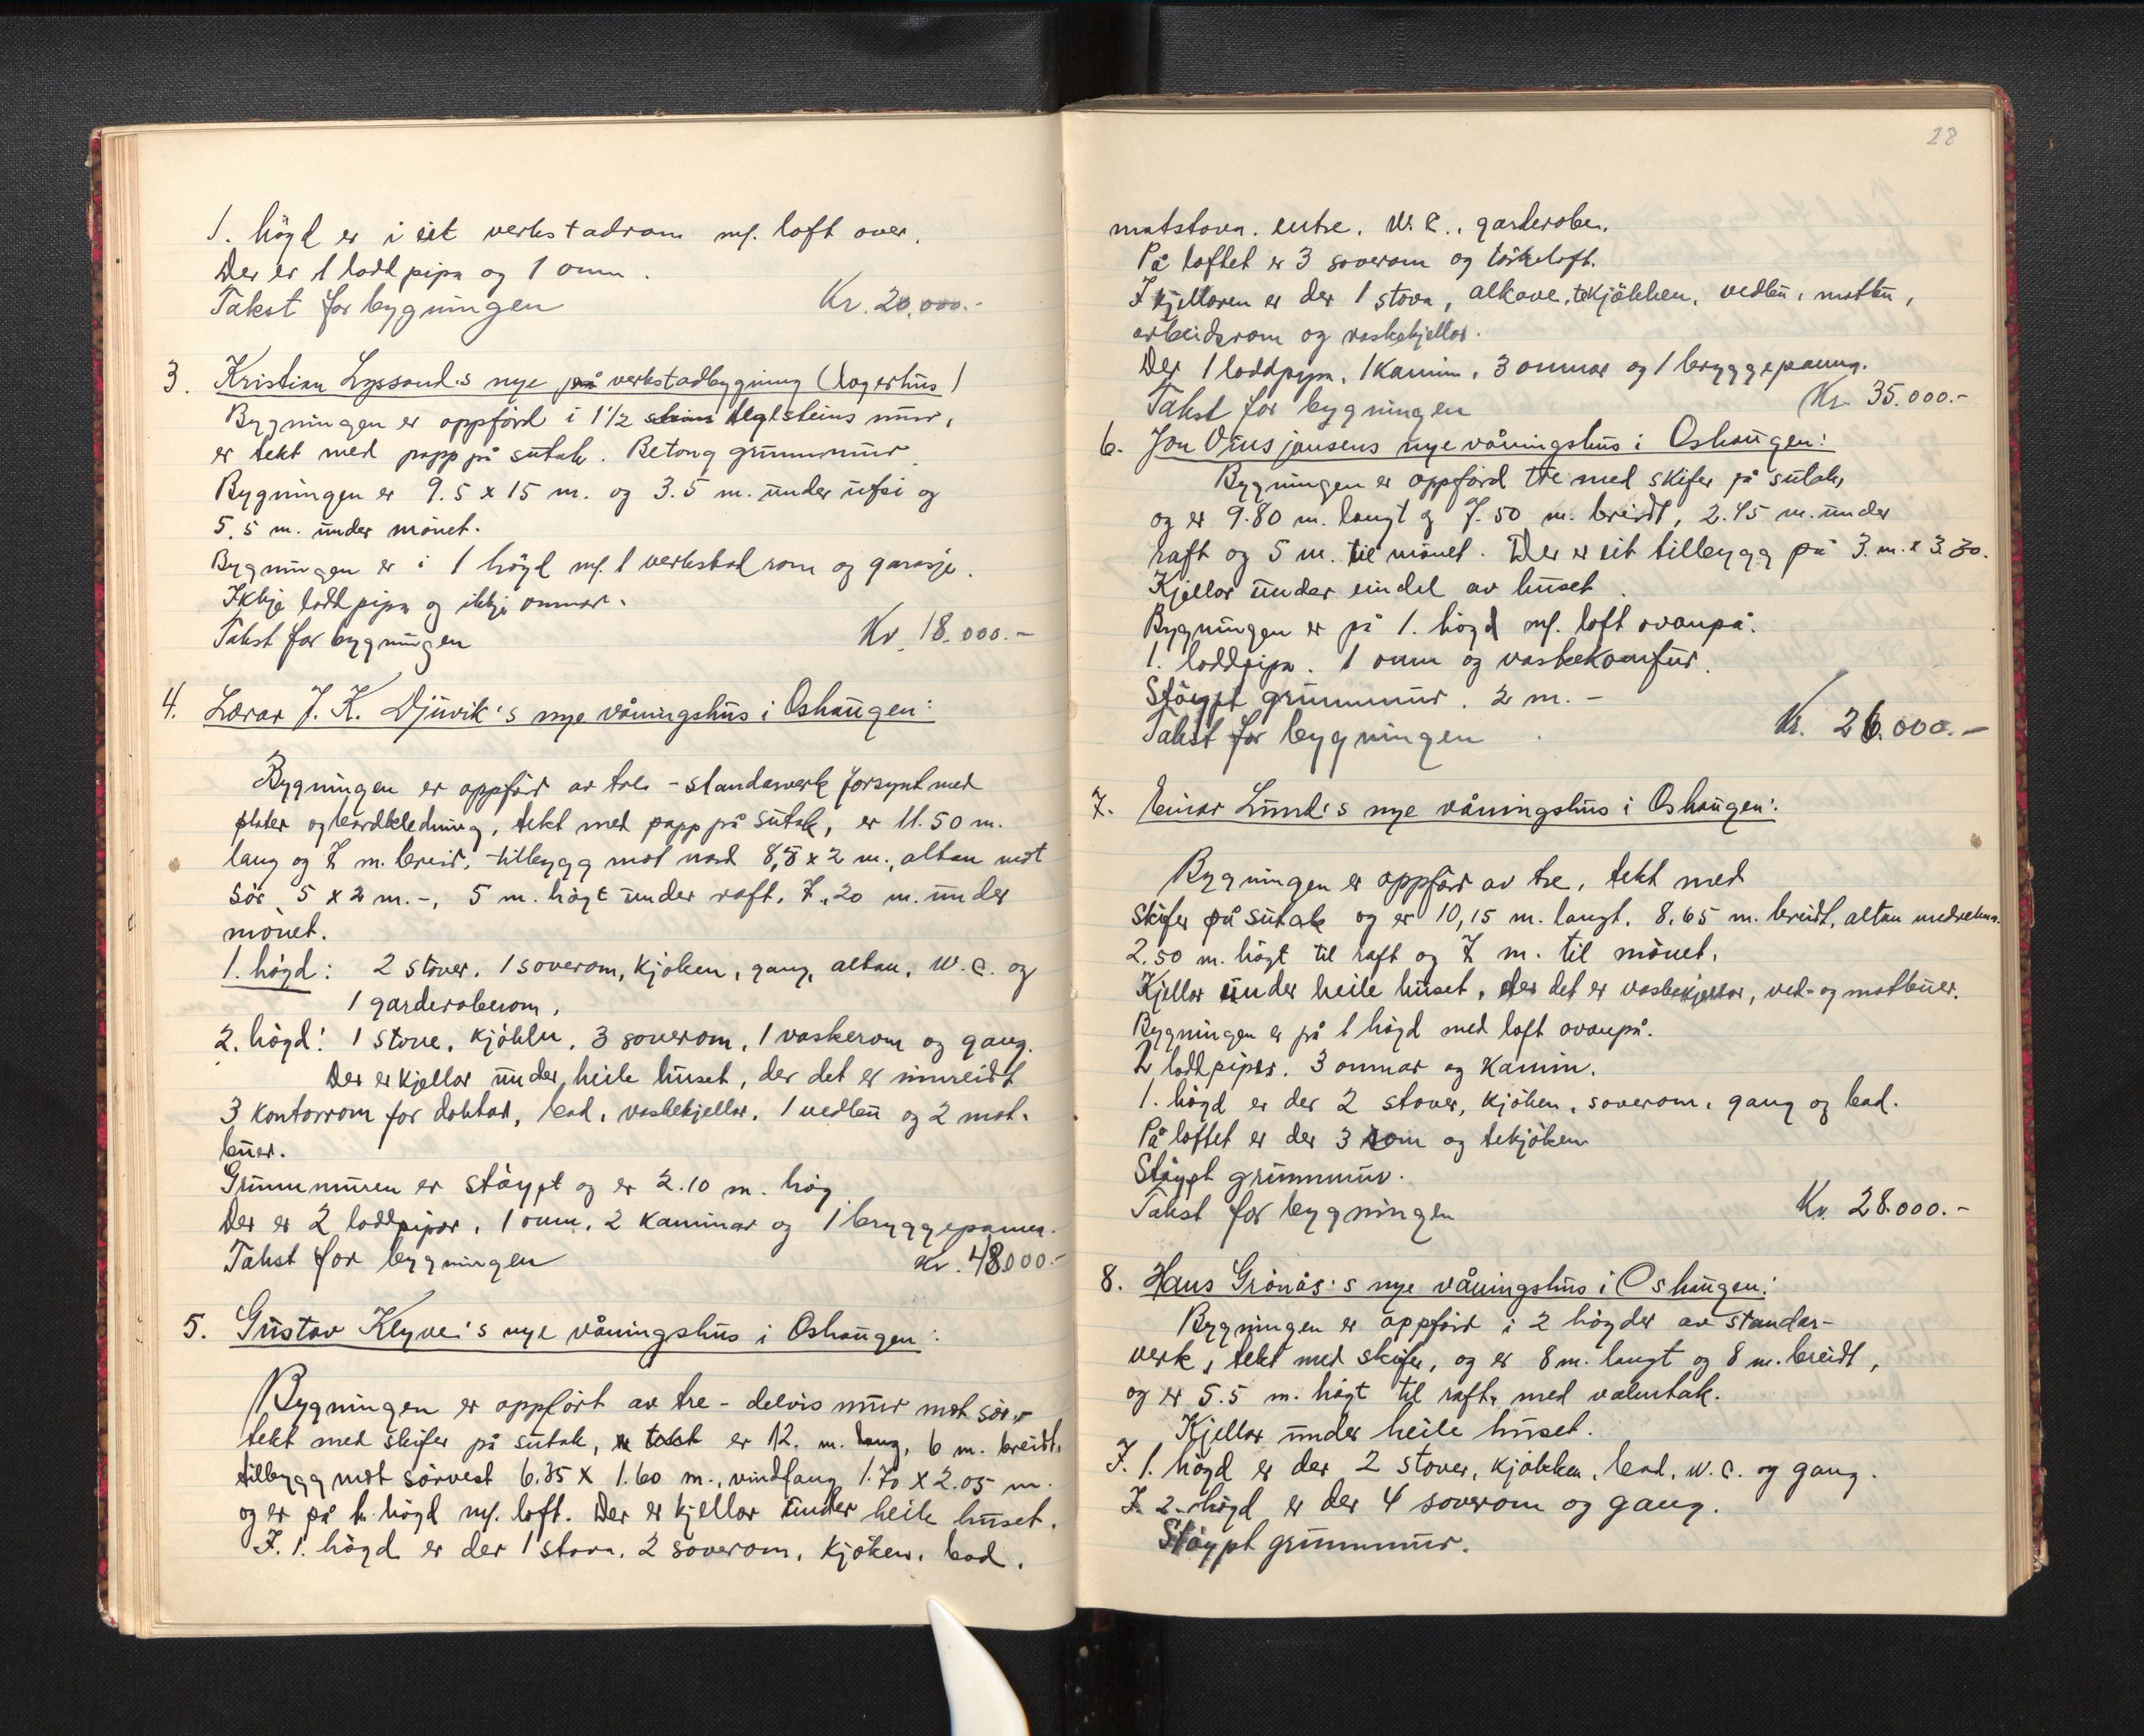 1. högd er i eit verkstadrom m/. loft over.
Der er 1 lodd pipa og 1 omn.
Takst for bygningen Kr. 20.000.-
3. Kristian Lyssand's nye på verkstadbygning (lagerhus)
Bygningen er oppförd i 1 1/2 stein teglsteins mur,
er tekt med papp på sutak. Betong grunnmur.
Bygningen er 9.5 x 15 m. og 3.5 m. under ufsi og
5.5 m. under mönet.
Bygningen er i 1 högd m/. 1 verkstad rom og garasje.
Ikkje lodd pipa og ikkje omnar.
Takst for bygningen Kr. 18.000.-
4. Lærar J. K. Djuvik's nye våningshus i Oshaugen:
Bygningen er oppförd av tre - standarverk forsynt med
plater og bordkledning, tekt med papp på sutak, er 11.50 m.
lang og 7 m. breid, tilbygg mot nord 8,8 x 2 m., altan mot
sör 5 x 2 m. -, 5 m. högt under raft, 7.20 m. under
mönet.
1. högd: 2 stover, 1 soverom, kjöken, gang, altan, W.C. og
1 garderoberom,
2. högd: 1 stove, kjökken, 3 soverom, 1 vaskerom og gang.
Der er kjellar under heile huset, der det er innreidt
3 kontorrom for doktar, bad, vaskekjellar, 1 vedbu og 2 mat-
buer.
Grunnmuren er stöypt og er 2.10 m. hög
Der er 2 loddpipor, 1 omn, 2 kaminar og 1 bryggepanna.
Takst for bygningen Kr. 48.000.-
5. Gustav Klyve's nye våningshus i Oshaugen:
Bygningen er oppfört av tre - delvis mur mot sör, -
tekt med skifer på sutak, er 12. m. lang, 6 m. breidt,
tilbygg mot sörvest 6.35 x 1.60 m., vindfang 1.70 x 2.05 m.
og er på 1. högd m/. loft. Der er kjellar under heile huset.
I. 1. högd er der 1 stova, 2 soverom, kjöken, bad,
28
matstova, entre, W.C., garderobe.
På loftet er 3 soverom og törkeloft.
I kjellaren er der 1 stova, alkove, tekjökken, vedbu, matbu,
arbeidsrom og vaskekjellar.
Der 1 loddpipa, 1 kamin, 3 omnar og 1 bryggepanna.
Takst for bygningen Kr. 35.000.-
6. Jon Ousjansens nye våningshus i Oshaugen:
Bygningen er oppförd tre med skifer på sutak,
og er 9.80 m. langt og 7.50 m. breidt, 2.45 m. under
raft og 5 m. til mönet. Der er eit tilbygg på 3. m. x 3.30.
Kjellar under eindel av huset.
Bygningen er på 1. högd m/. loft ovanpå.
1. loddpipa. 1 omn og vaskekomfur.
Stöypt grunnmur. 2 m. -
Takst for bygningen Kr. 26.000.-
7. Einar Lund's nye våningshus i Oshaugen:
Bygningen er oppförd av tre, tekt med
skifer på sutak og er 10,15 m. langt, 8.65 m. breidt, altan medrekna.
2.50 m. högt til raft og 7 m. til mönet.
Kjellar under heile huset, der det er vaskekjellar, ved- og matbuer.
Bygningen er på 1 högd med loft ovanpå.
2 loddpipor. 3 omnar og kamin.
1. högd er der 2 stover, kjöken, soverom, gang og bad.
På loftet er der 3 rom og tekjöken
Stöypt grunnmur.
Takst for bygningen Kr. 28.000.-
8. Hans Grönås's nye våningshus i Oshaugen:
Bygningen er oppförd i 2 högder av standar-
verk, tekt med skifer, og er 8 m. langt og 8 m. breidt,
og er 5.5 m. högt til raft, med valmtak.
Kjellar under heile huset.
I. 1. högd er der 2 stover, kjökken, bad, W.C. og gang.
I. 2. högd er der 4 soverom og gang.
Stöypt grunnmur.